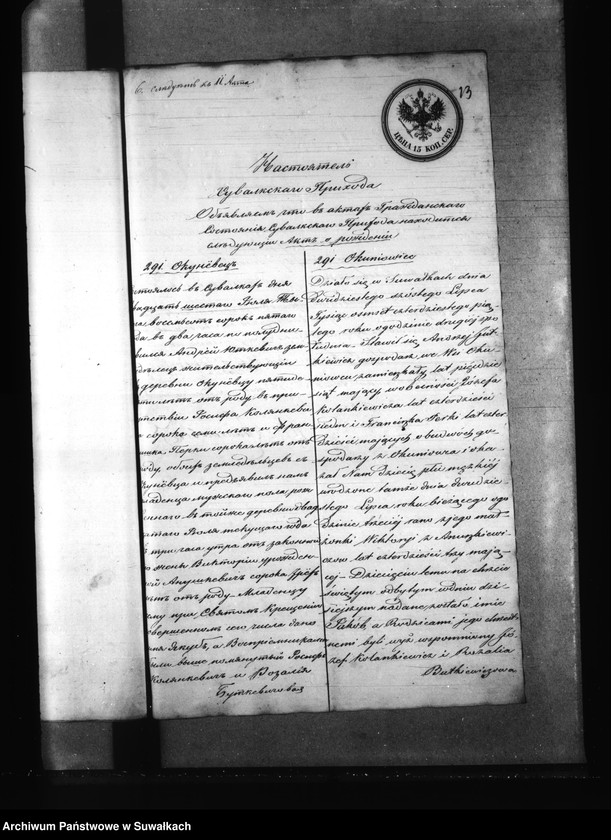 6. следуетъ къ 11 Акта
13
ЦѢНА 15 КОП. СЕР.
Настоятель
Сувалкскаго Прихода
Объявляемъ что въ актахъ Гражданскаго
Состоянія Сувалкскаго Прихода находится
слѣдующій Актъ о рожденіи
291. Окунёвецъ
стоялось въ Сувалкахъ дня
вадцать шестаго Іюля Ты-
ча восемьсотъ сорокъ пятаго
да въ два часа по полудни
вился Андрей Юткевичъ зем
дѣлецъ жительствующій
деревни Окунёвцу пятиде
лѣтъ отъ роду въ при-
тствіи Іосифа Колянкеви
сорока семи лѣтъ и Фран
Перки сорока лѣтъ отъ
роду, обоихъ земледѣльцевъ съ
кунёвца и предъявилъ намъ
младенца мужескаго пола рож
ннаго въ той же деревни двад
цатаго Іюля текущаго года
три часа утра отъ законной
жены Викторіи урожден-
ой Анушкевичъ сорока трёхъ
ѣтъ отъ роду. Младенцу
ему при Святомъ Крещеніи
овершенномъ его числа дано
мя Якубъ, а Воспріемниками
были выше помянутый Іосифъ
Колянкевичъ и Розалія
Буткевичова
291 Okuniowiec
Działo się w Suwałkach dnia
dwudziestego szóstego Lipca
Tysiąc osmset czterdziestego pią-
tego roku o godzinie drugiéj po
południu. Stawił się Andrzej Jut
kiewicz gospodarz we Wsi Oku-
niowcu zamieszkały, lat pięćdzie
siąt mający w obecności Józefa
Kolankiewicza lat czterdzieści
siedm i Franciszka Perki lat czter
dzieści mających obudwóch go-
spodarzy z Okuniowca i oka-
zał Nam dziecię płci męzkiéj
urodzone tamże dnia dwudzie-
stego Lipca roku bieżącego o go
dzinie trzeciéj rano z jego mał
żonki Wiktoryi z Anuszkiewi-
czów lat czterdzieści trzy mają-
céj – Dziecięciu temu na chrzcie
świętym odbytym w dniu dzi-
siejszym nadane zostało imie
Jakób, a Rodzicami jego chrzest
nemi byli wyż wspomniony Jó
zef Kolankiewicz i Rozalia
Butkiewiczowa
Archiwum Państwowe w Suwałkach